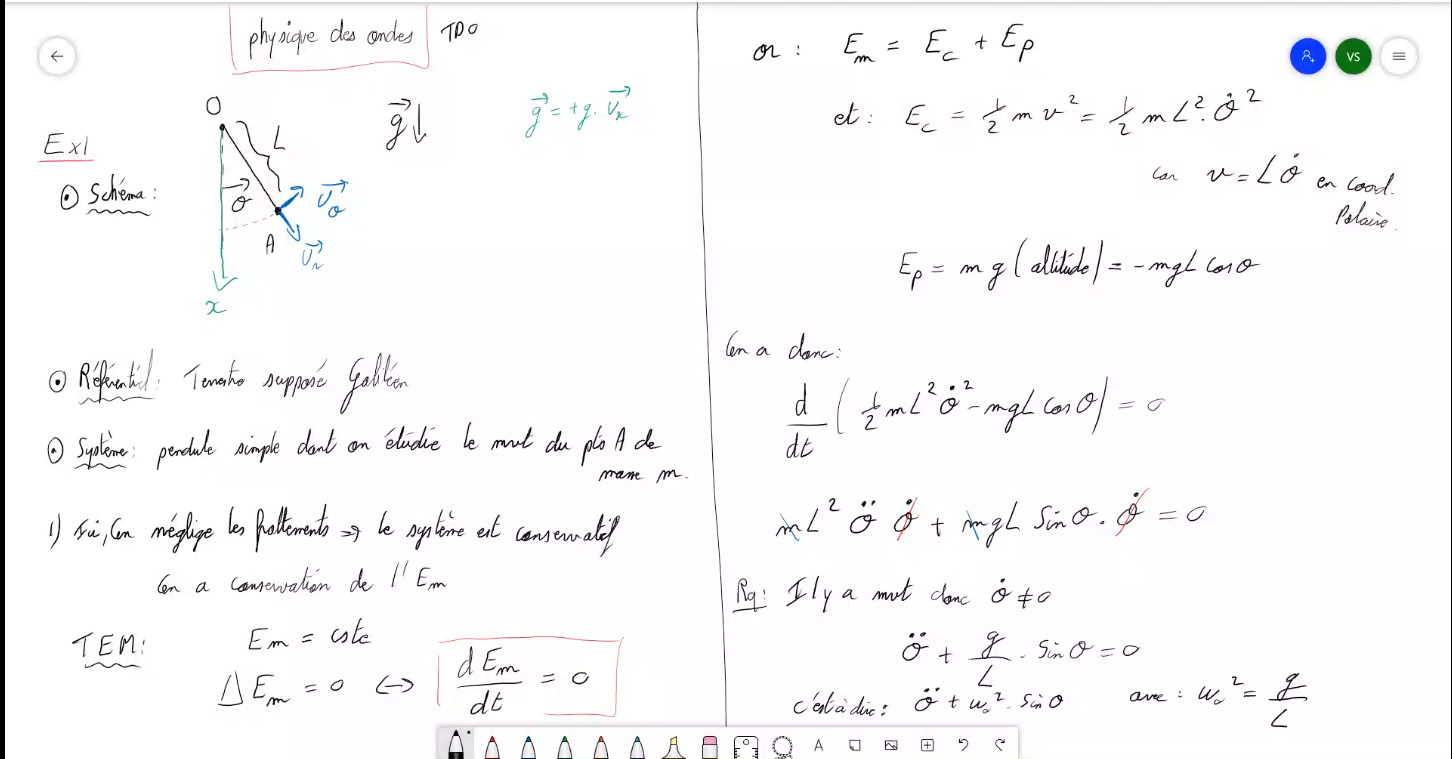 physique des ondes TD0
Ex1
⊙ Schéma:
O
L
θ
A
x
g⃗ ↓
g⃗ = +g. U⃗x
U⃗θ
U⃗r
⊙ Référentiel: Terrestre supposé Galiléen
⊙ Système: pendule simple dont on étudie le mvt du pts A de
masse m.
1) Ici, On néglige les frottements ⇒ le système est conservatif
On a conservation de l'Em
TEM: Em = cste
ΔEm = 0 ↔ dEm/dt = 0
or : Em = Ec + Ep
et : Ec = 1/2 m v² = 1/2 m L². θ̇²
car v = Lθ̇ en coord.
Polaire.
Ep = m g (altitude) = - mgL cos θ
On a donc:
d/dt (1/2 mL² θ̇² - mgL cos θ) = 0
mL² θ̈ θ̇ + mgL Sin θ . θ̇ = 0
Rq: Il y a mvt donc θ̇ ≠ 0
θ̈ + g/L . Sin θ = 0
c'est à dire : θ̈ + ω₀². Sin θ avec : ω₀² = g/L
VS
A